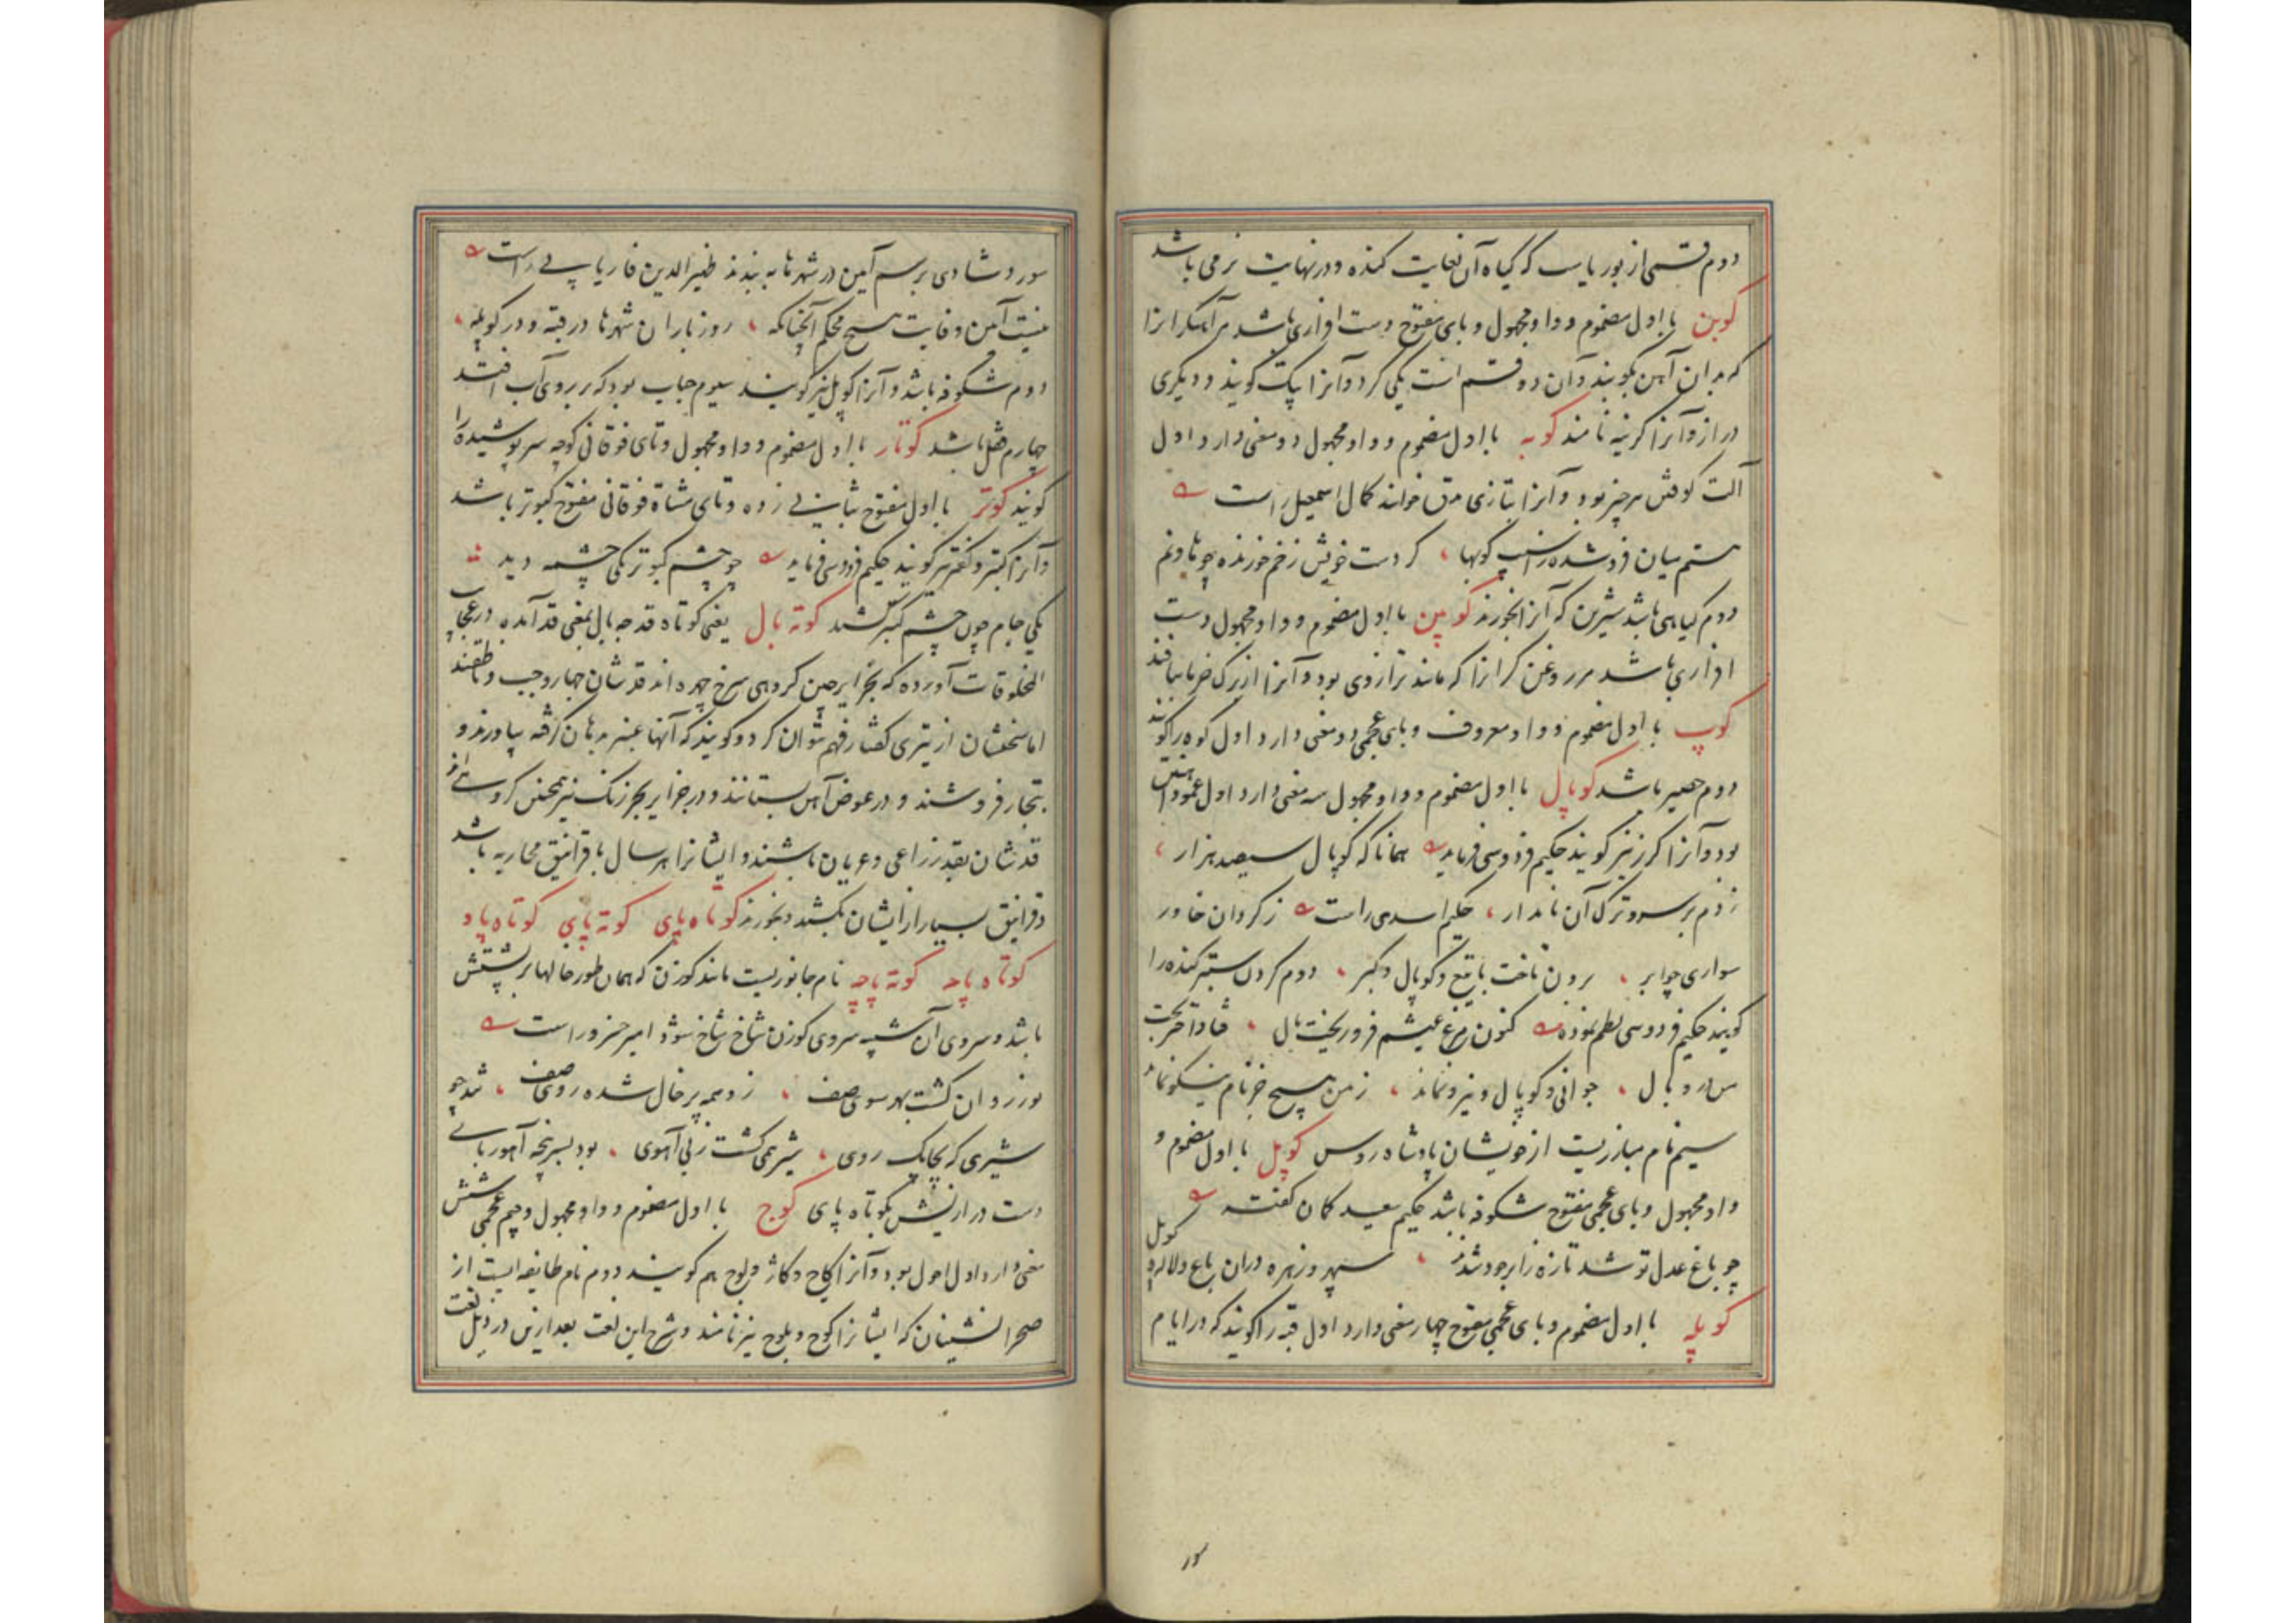 دوم قسمی از بوریاست که گیاه آن بغایت کنده و در نهایت نرمی باشد
کوبن با اول مضموم و واو مجهول و بای مفتوح دست افزاری باشد مر آهنگرانرا
که بدان آهن بکوبند و آن دو قسم است یکی کرد و آنرا پتک گویند و دیگری
دراز و آنرا گزینه نامند کوبه با اول مضموم و واو مجهول دو معنی دارد اول
آلت کوفتن هر چیز بود و آنرا بتازی مدق خوانند کمال اسمعیل راست
ستم میان فرو شده ز اسیب کوبها کز دست خویش زخم خورنده چو هاونم
دوم گیاهی باشد شیرین که آنرا بخورند کوپن با اول مضموم و واو مجهول دست
افزاری باشد مر روغن گرانرا که مانند ترازوی بود و آنرا از برک خرما بافند
کوپ با اول مضموم و واو معروف و بای عجمی دو معنی دارد اول کوه را گویند
دوم حصیر باشد کوپال با اول مضموم و واو مجهول سه معنی دارد اول عمود آهنین
بود و آنرا گرز نیز گویند حکیم فردوسی فرماید همانا که کوپال سیصد هزار
زدم بر سر و ترک آن نامدار حکیم اسدی راست ز گردان خاور
سواری چو ابر برون تاخت با تیغ و کوپال و گبر دوم گردن ستبر کنده را
گویند حکیم فردوسی نظم نموده کنون مرغ عیشم فرو ریخت بال فتاد اختر بخت
من در وبال جوانی و کوپال و نیرو نماند ز من هیچ جز نام نیکو نماند
سیم نام مبارزیست از خویشان پادشاه روس کوپل با اول مضموم و
واو مجهول و بای عجمی مفتوح شکوفه باشد حکیم سعید کمان گفته
چو باغ عدل تو شد تازه زابر جود شدند سپهر و زهره در ان باغ و لاله و کوپل
کوپله با اول مضموم و بای عجمی مفتوح چهار معنی دارد اول قبه را گویند که در ایام
سور
سور و شادی برسم آیین در شهرها به بندند ظهیر الدین فاریابی راست
نیست آمن وقایت هیچ محکم آنچنانکه روز باران شهرها در قبه و در کوپله
دوم شکوفه باشد و آنرا کوپل نیز گویند سیوم حباب بود که بر روی آب افتد
چهارم قفل باشد کوتار با اول مضموم و واو مجهول و تای فوقانی کوچه سر پوشیده را
گویند کوتر با اول مفتوح بثانی زده و تای مثناة فوقانی مفتوح کبوتر باشد
و آنرا کبتر و کفتر نیز گویند حکیم فردوسی فرماید چو چشم کبوتر یکی چشمه دید
یکی جام چون چشم گبر کشد کوته بال یعنی کوتاه قد چه بال بمعنی قد آمده در عجایب
المخلوقات آورده که بجزایر چین گروهی سرخ چهره اند قدشان چهار وجب و ناطقند
اما سخنشان از تیزی گفتار فهم نتوان کرد و گویند که آنها عنبر بدهان گرفته بیاورند و
بتجار فروشند و در عوض آهن بستانند و در جزایر بحر زنک نیز همچنین گروهی اند
قدشان بقدر ذراعی و عریان باشند و ایشانرا هر سال با غرانیق محاربه باشد
و غرانیق بسیار از ایشان بکشد و بخورند کوتاه پای کوته پای کوتاه پاد
کوتاه پاچه کوته پاچه نام جانوریست مانند گوزن که همان طور خالها بر پشتش
باشد و سروی آن شبیه سروی گوزن شاخ شاخ شود امیر خسرو راست
گوزن دوان گشت بهر سوی صف زو همه پر خال شده روی صف شد چو
شیری که بچابک روی شیر همی گشت ز بی آهوی بود بسر پنجه آهو ربای
دست درازیش بکوتاه پای کوچ با اول مضموم و واو مجهول و جیم عجمی شش
معنی دارد اول احول بود و آنرا کاج و کاژ و لوچ هم گویند دوم نام طایفه ایست از
صحرا نشینان که ایشانرا کوچ و بلوچ نیز نامند و شرح این لغت بعد ازین در ذیل لغت